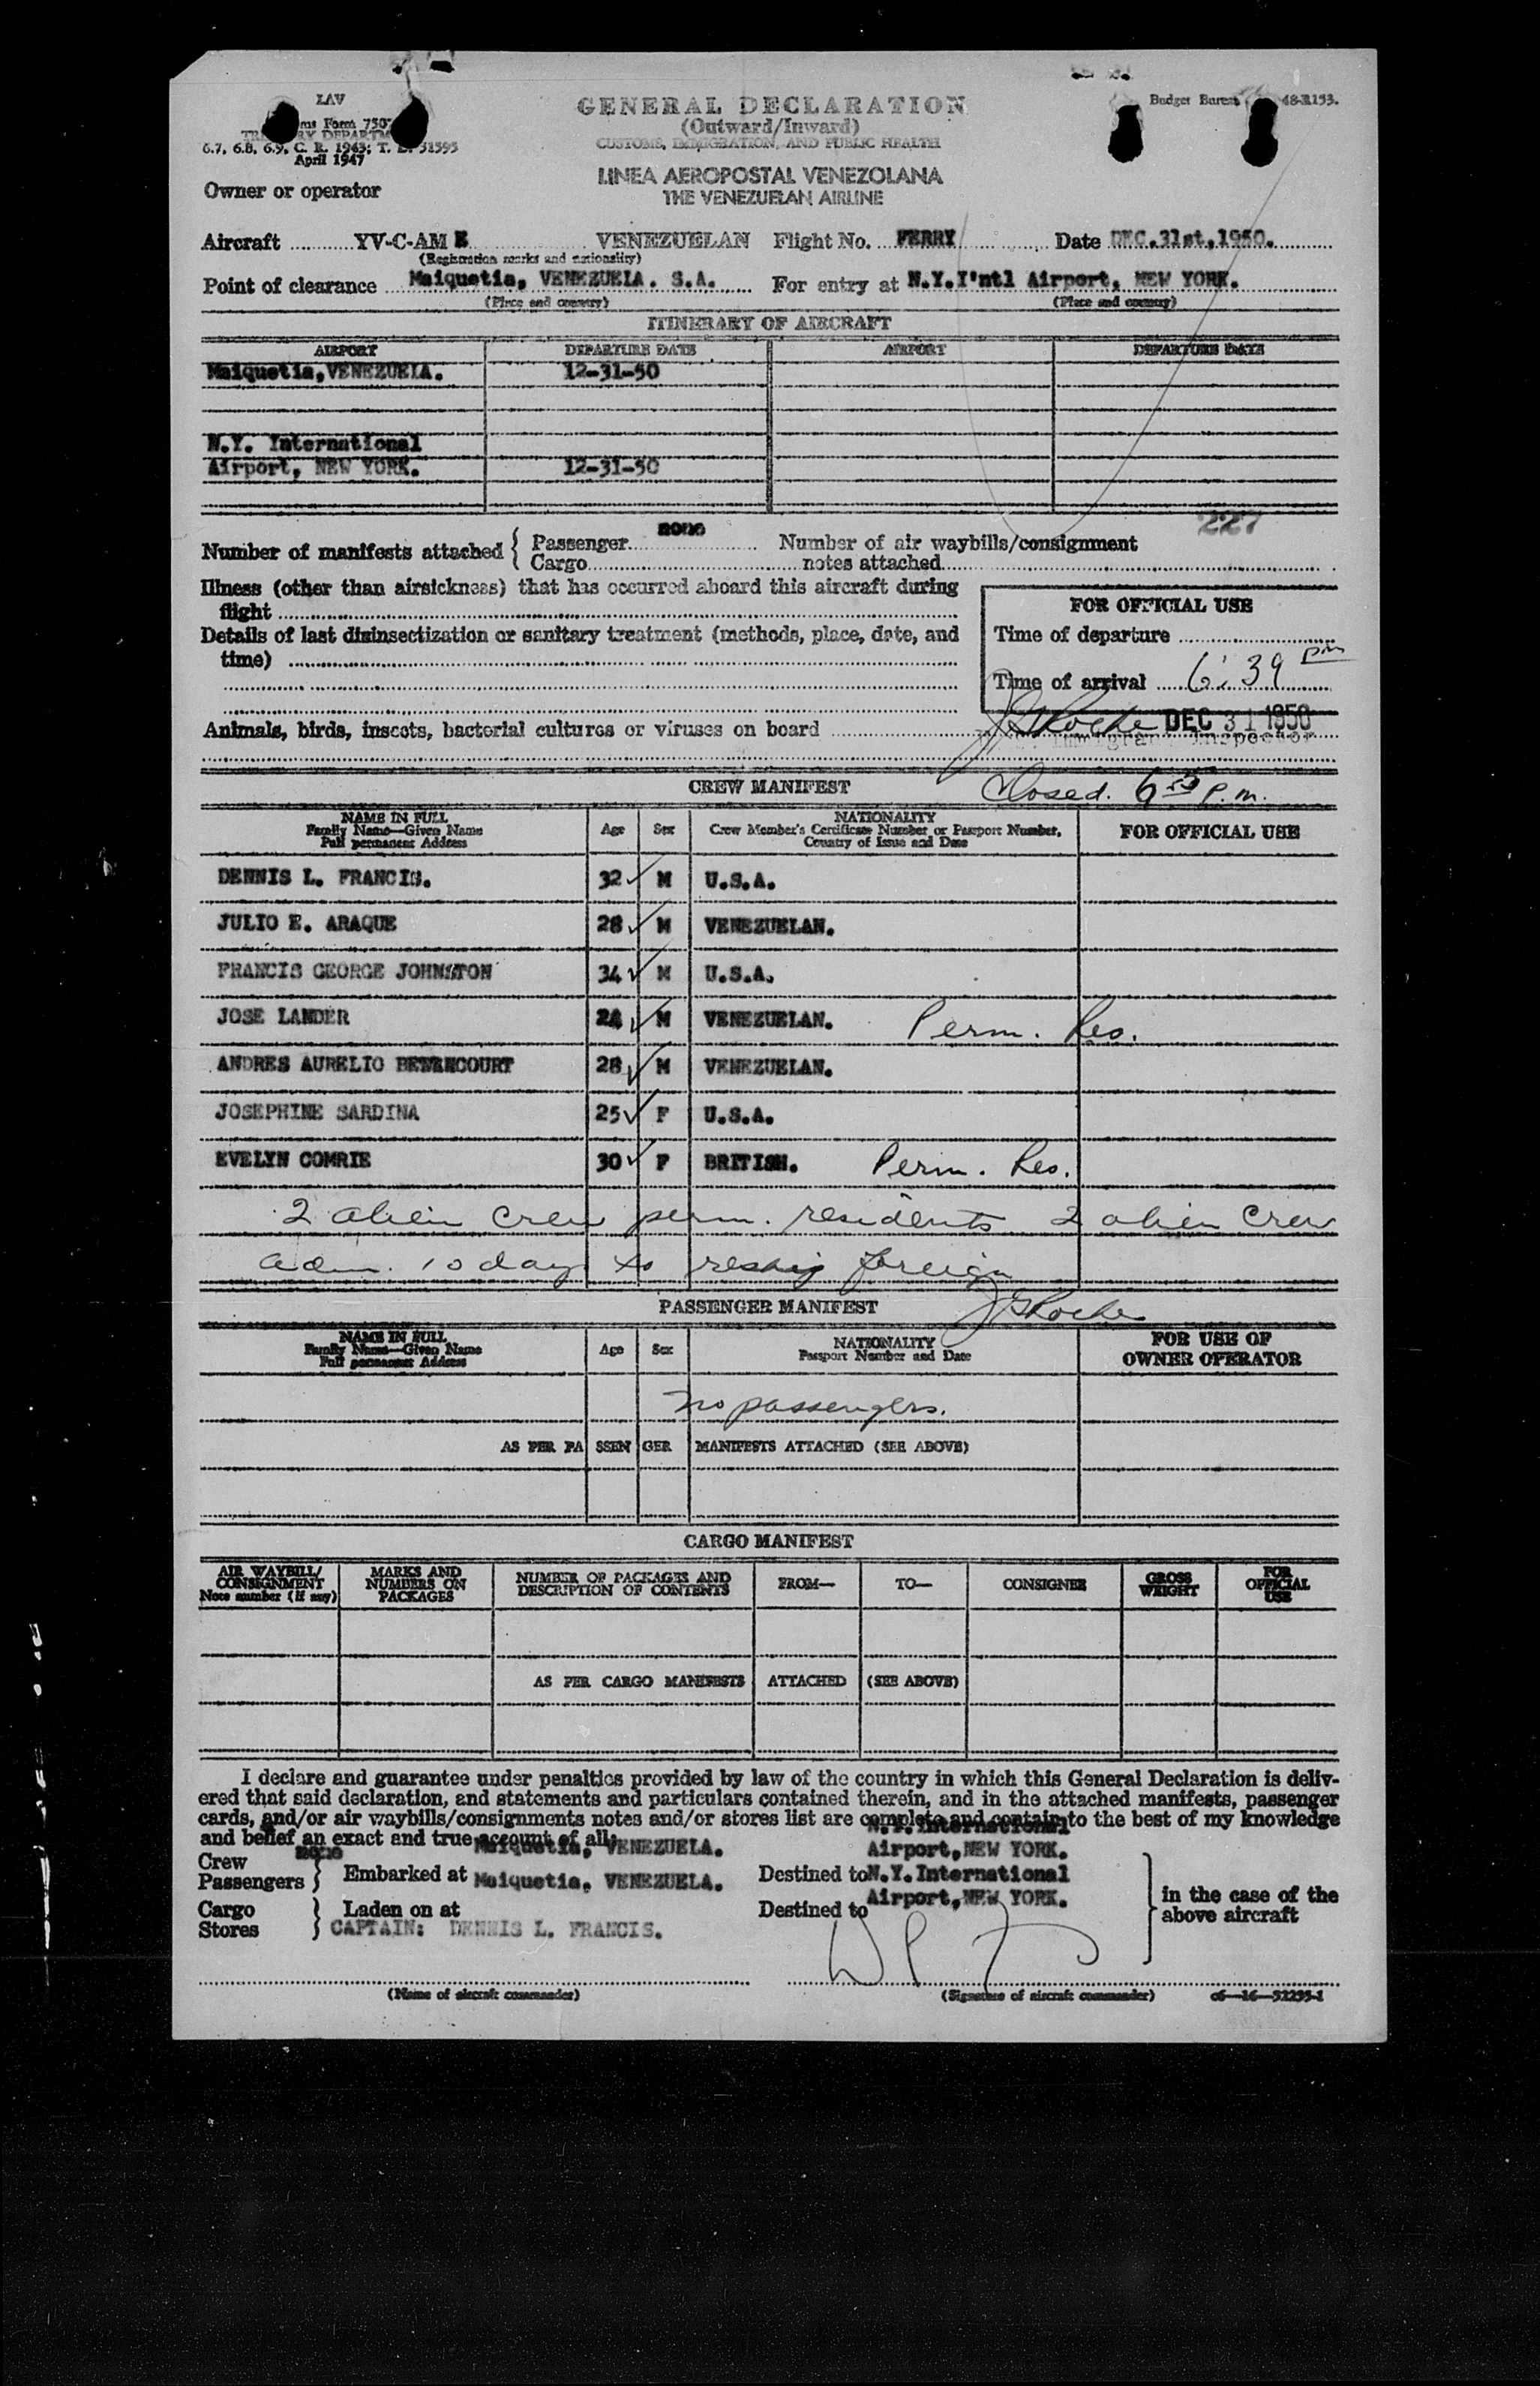 LAV
GENERAL DECLARATION
(Outward/Inward)
CUSTOMS, IMMIGRATION, AND PUBLIC HEALTH
Form 750
6.7, 6.8, 6.9, C. R. 1943; T. D. 51595
April 1947
LINEA AEROPOSTAL VENEZOLANA
THE VENEZUELAN AIRLINE
Owner or operator
Aircraft YV-C-AM E VENEZUELAN Flight No. FERRY Date DEC.31st.1950.
(Registration marks and nationality)
Point of clearance Maiquetia, VENEZUELA. S.A. For entry at N.Y.I'ntl Airport, NEW YORK.
(Place and country) (Place and country)
ITINERARY OF AIRCRAFT
AIRPORT DEPARTURE DATE AIRPORT DEPARTURE DATE
Maiquetia, VENEZUELA. 12-31-50
N.Y. International
Airport, NEW YORK. 12-31-50
227
none
Number of manifests attached { Passenger Number of air waybills/consignment
Cargo notes attached
Illness (other than airsickness) that has occurred aboard this aircraft during
flight
FOR OFFICIAL USE
Details of last disinsectization or sanitary treatment (methods, place, date, and
time)
Time of departure
Time of arrival 6:39 pm
DEC 31 1950
Animals, birds, insects, bacterial cultures or viruses on board
Immigrant Inspector
CREW MANIFEST Closed. 6 P.m.
NAME IN FULL
Family Name—Given Name
Full permanent Address
Age Sex
NATIONALITY
Crew Member's Certificate Number or Passport Number,
Country of Issue and Date
FOR OFFICIAL USE
DENNIS L. FRANCIS. 32 ✓ M U.S.A.
JULIO E. ARAQUE 28 ✓ M VENEZUELAN.
FRANCIS GEORGE JOHNSTON 34 ✓ M U.S.A.
JOSE LANDER 24 ✓ M VENEZUELAN. Perm. Res.
ANDRES AURELIO BETANCOURT 28 ✓ M VENEZUELAN.
JOSEPHINE SARDINA 25 ✓ F U.S.A.
EVELYN COMRIE 30 ✓ F BRITISH. Perm. Res.
2 alien crew perm. residents 2 alien crew
adm. 10 days to reship foreign
PASSENGER MANIFEST JGRoche
NAME IN FULL
Family Name—Given Name
Full permanent Address
Age Sex
NATIONALITY
Passport Number and Date
FOR USE OF
OWNER OPERATOR
No passengers.
AS PER PASSENGER MANIFESTS ATTACHED (SEE ABOVE)
CARGO MANIFEST
AIR WAYBILL/
CONSIGNMENT
Note number (if any)
MARKS AND
NUMBERS ON
PACKAGES
NUMBER OF PACKAGES AND
DESCRIPTION OF CONTENTS
FROM— TO— CONSIGNEE
GROSS
WEIGHT
FOR
OFFICIAL
USE
AS PER CARGO MANIFESTS ATTACHED (SEE ABOVE)
I declare and guarantee under penalties provided by law of the country in which this General Declaration is deliv-
ered that said declaration, and statements and particulars contained therein, and in the attached manifests, passenger
cards, and/or air waybills/consignments notes and/or stores list are complete and contain to the best of my knowledge
and belief an exact and true account of all:
Maiquetia, VENEZUELA. N.Y. International
Airport, NEW YORK.
Crew none
Passengers } Embarked at Maiquetia, VENEZUELA. Destined to N.Y. International
Airport, NEW YORK.
Cargo
Stores } Laden on at Destined to
in the case of the
above aircraft
CAPTAIN: DENNIS L. FRANCIS.
(Name of aircraft commander) (Signature of aircraft commander) c6—16—52295-1